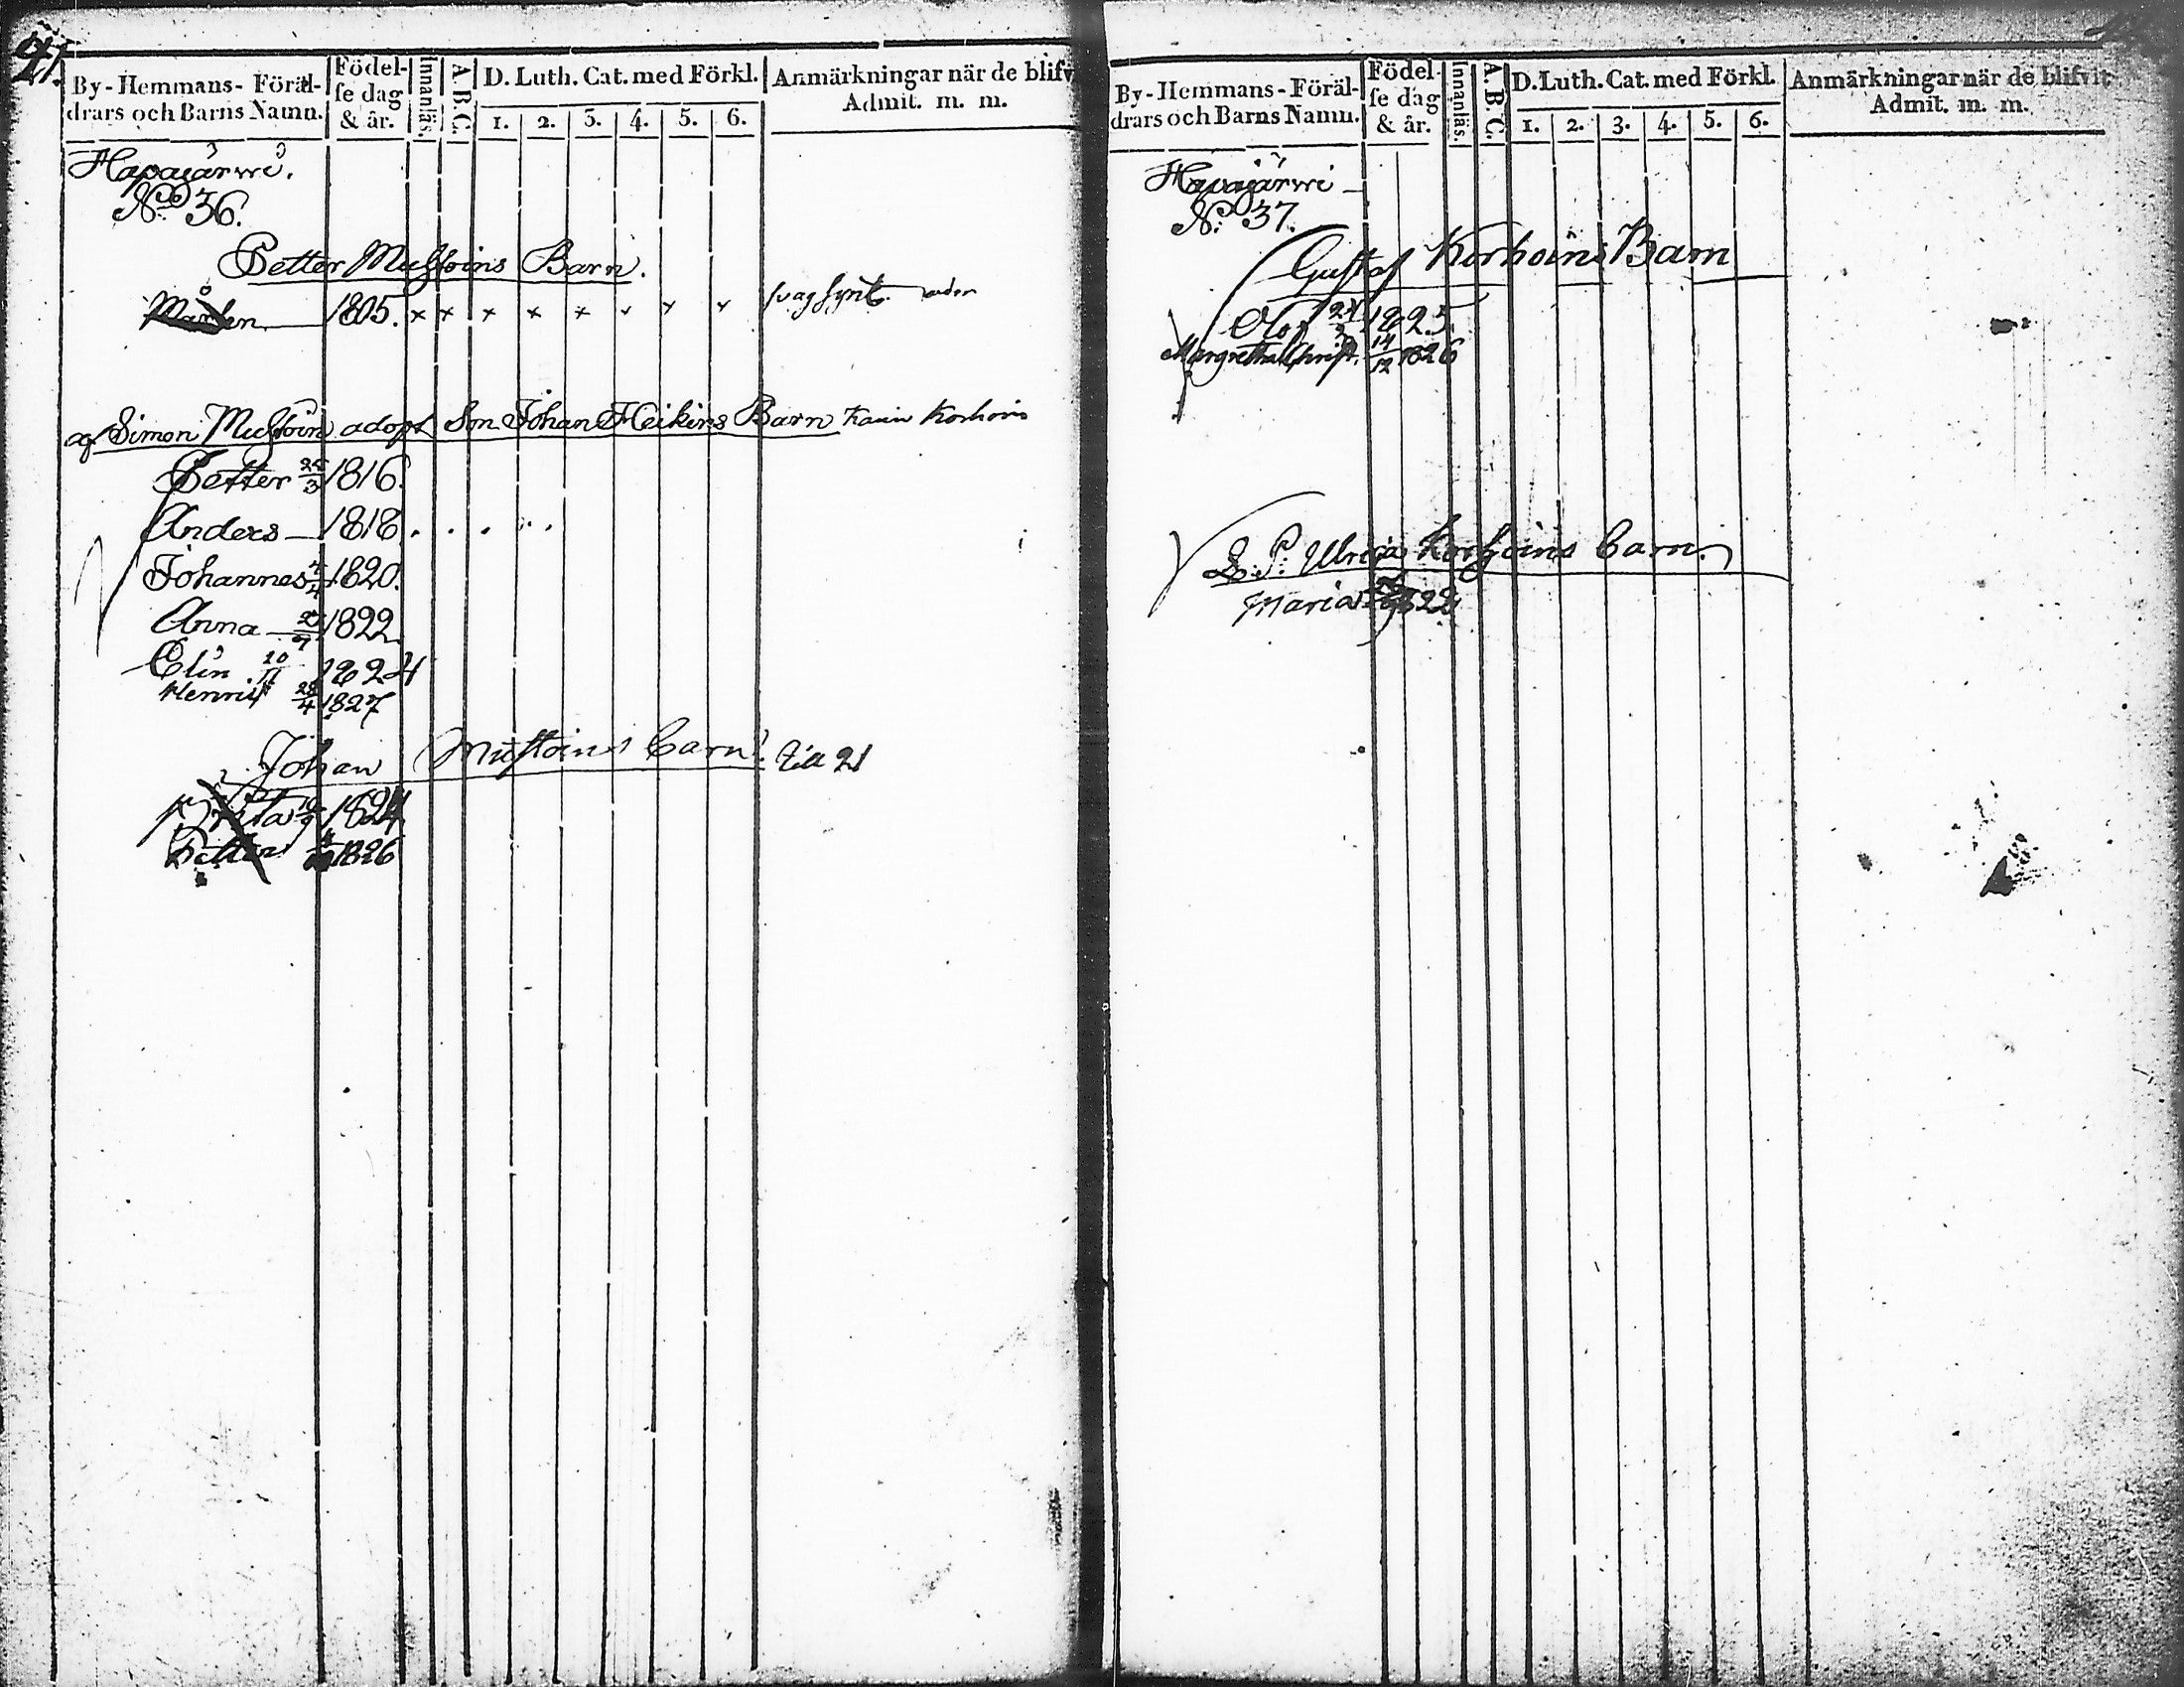 21.
By-Hemmans-Föräl-
drars och Barns Namn.
Födel-
se dag
& år.
Innanläs.
A.B.C.
D. Luth. Cat. med Förkl.
1. 2. 3. 4. 5. 6.
Anmärkningar när de blifv
Admit. m. m.
Hapajärwi.
No 36.
Petter Mustoins Barn.
Mårten 1805. x x x x x x x x svag synt.
af Simon Mustoin adopt Son Johan Heikins Barn Karin Korhoin
Petter 25/3 1816.
Anders 1818. . . . . .
Johannes 1820.
Anna 1822
Elin 10/11 1824
Henrik 28/4 1827
Johan Mustoins Barn till 21
Brita 1824
Petter 1826
By-Hemmans-Föräl-
drars och Barns Namn.
Födel-
se dag
& år.
Innanläs.
A.B.C.
D. Luth. Cat. med Förkl.
1. 2. 3. 4. 5. 6.
Anmärkningar när de blifvit
Admit. m. m.
Hapajärwi
No: 37.
Gustaf Korhoins Barn
Olof 1825.
Margretha Christ. 14/12 1826
Q: P: Ulrica Korhoins barn.
Maria 1822